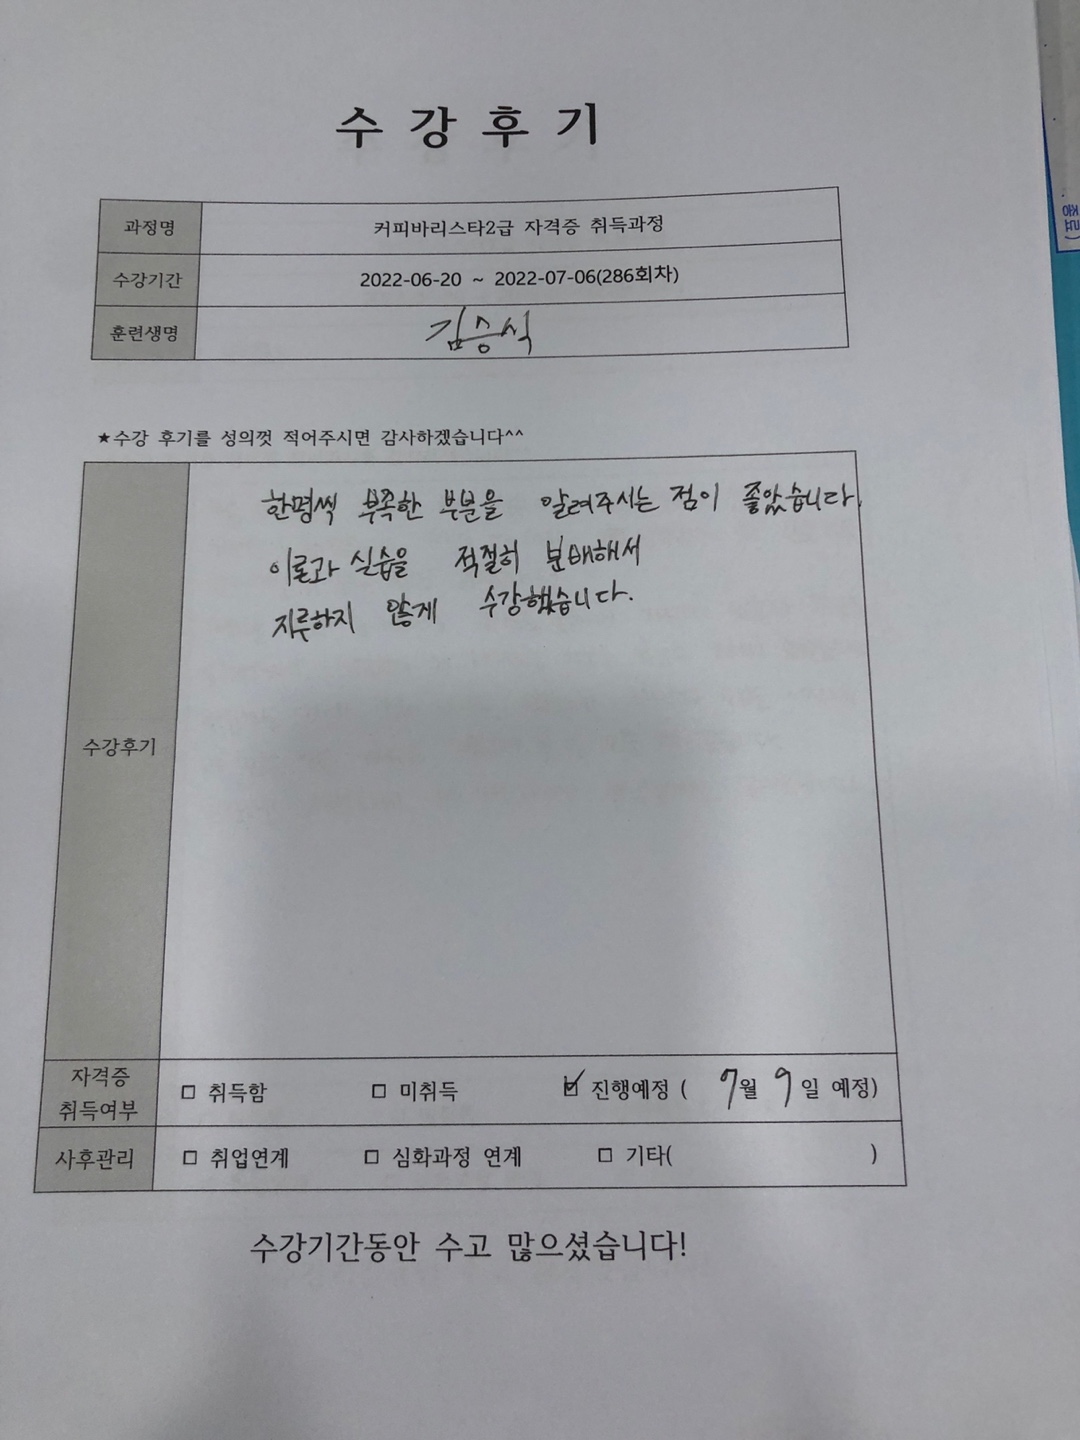 수 강 후 기
과정명 커피바리스타2급 자격증 취득과정
수강기간 2022-06-20 ~ 2022-07-06(286회차)
훈련생명 김승식
★수강 후기를 성의껏 적어주시면 감사하겠습니다^^
한명씩 부족한 부분을 알려주시는 점이 좋았습니다.
이론과 실습을 적절히 분배해서
지루하지 않게 수강했습니다.
수강후기
자격증
취득여부
□ 취득함 □ 미취득 ☑ 진행예정 ( 7월 9일 예정)
사후관리 □ 취업연계 □ 심화과정 연계 □ 기타( )
수강기간동안 수고 많으셨습니다!